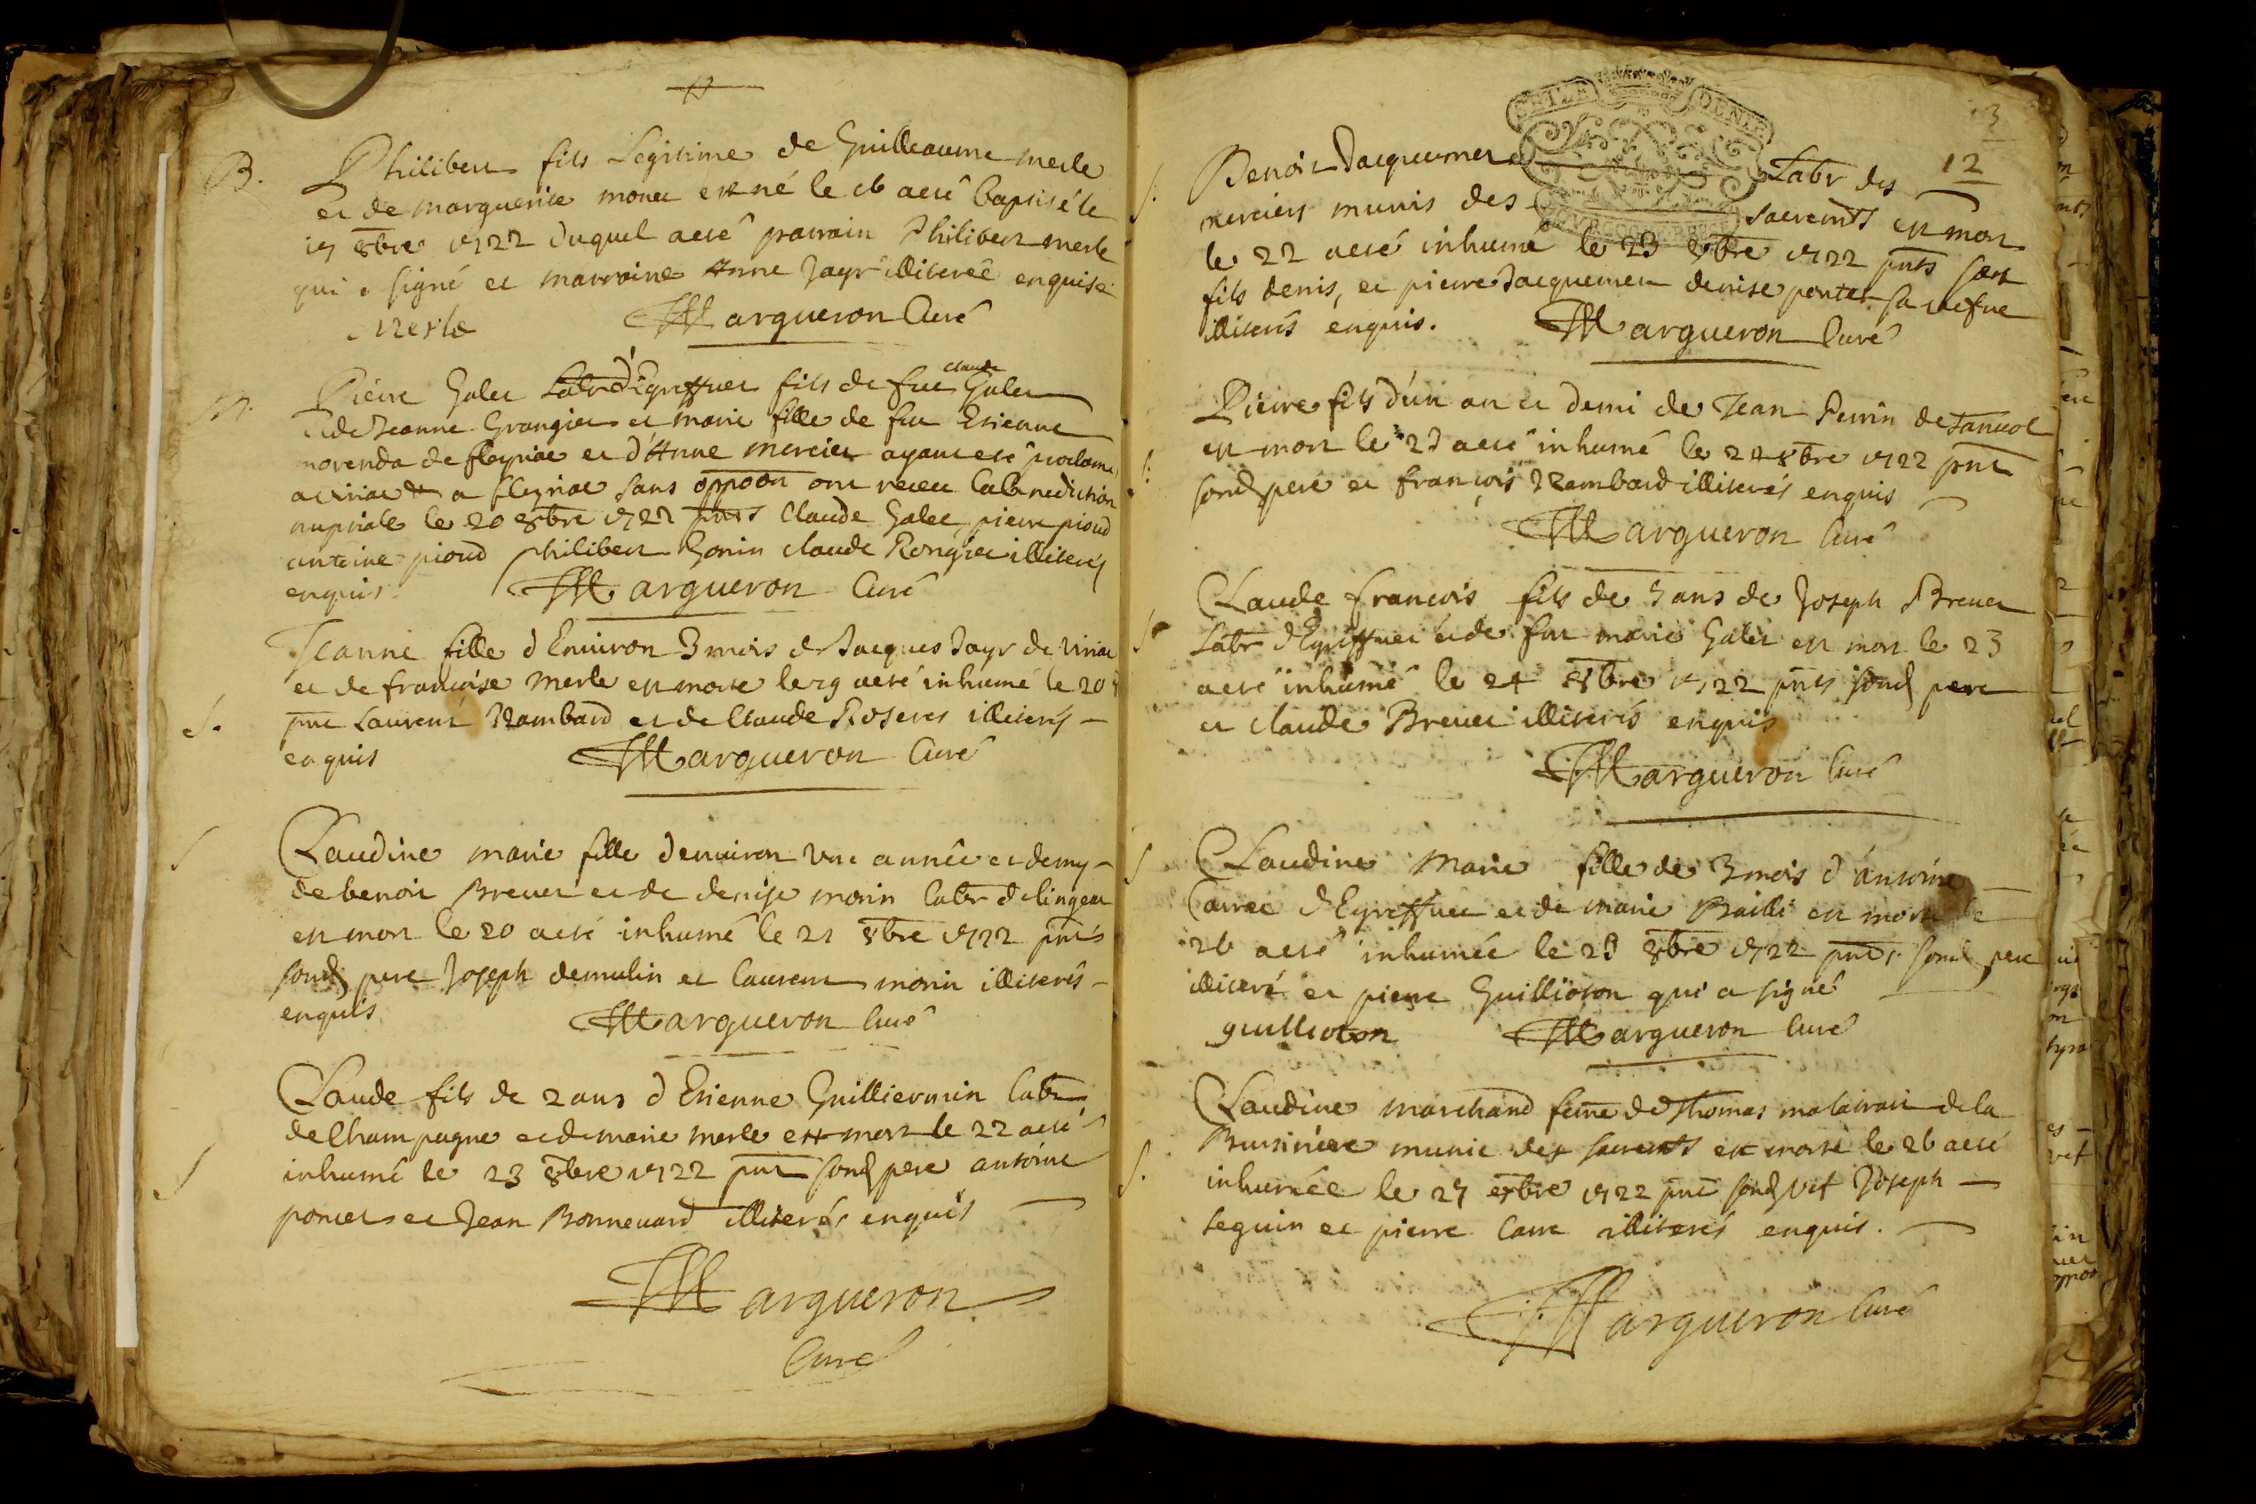 B. Philibert fils Legitime de Guilleaume merle
et de marguerite monet est né le 16 aeté baptisé le
17 8bre 1722 duquel aeté parrain Philibert merle
qui a signé et marraine Anne Jayr illiterée enquise
Merle Margueron Curé
M. Pierre Galet Labr d'Eyreffuet fils de feu claude Galet
et de Jeanne Grangier et marie fille de feu Etienne
morenda de fleyriac et d'Anne mercier ayant eté proclamé
a viriac et a fleyriac sans oppoon ont receu la benediction
nuptiale le 20 8bre 1722 pnts Claude Galet, pierre pioud
antoine pioud philibert Gonin claude Rongier illiterés
enquis. Margueron Curé
Jeanne fille d'Environ 3 mois de Jacques Jayr de viriac
S. et de francoise merle est morte le 19 aeté inhumé le 20
pnt Laurent Rambard et de Claude Roseres illiterés
enquis Margueron Curé
S Claudine marie fille d'environ une année et demy
de benoit Brevet et de denise morin labr de lingeat
est mort le 20 aeté inhumé le 21 8bre 1722 pnts
sond pere Joseph demulin et laurent morin illiterés
enquis Margueron Curé
Claude fils de 2 ans d'Etienne Guilliermin labr
de Champagne et de marie merle est mort le 22 aeté
S inhumé le 23 8bre 1722 pnt sond pere antoine
poncet et Jean Bonnevard illiterés enquis
Margueron
Curé
12
S. Benoit Jacquemet Labr des
merciers munis des sacremts est mort
le 22 aeté inhumé le 23 8bre 1722 pnts ses
fils denis, et pierre Jacquemet denise pontet sa vefve
illiterés enquis. Margueron Curé
Pierre fils d'un an et demi de Jean Perrin de
S. est mort le 23 aeté inhumé le 24 8bre 1722 pnt
sond pere et françois Rambard illiterés enquis
Margueron Curé
Claude francois fils de 3 ans de Joseph Brevet
S. Labr d'Eyreffuet et de feu marie Galet est mort le 23
aeté inhumé le 24 8bre 1722 pnts sond pere
et claude Brevet illiterés enquis
Margueron Curé
S Claudine Marie fille de 3 mois d'antoine
Carre d'Eyreffuet et de marie Bailli est morte le
26 aeté inhumée le 2 8bre 1722 pnts sond pere
illiteré et pierre Guillioton qui a signé
guillioton Margueron Curé
Claudine marchand feme de Thomas de la
S. munie des sacremts est morte le 26 aeté
inhumée le 27 8bre 1722 pnt sond Joseph
seguin et pierre Carre illiterés enquis.
Margueron Curé